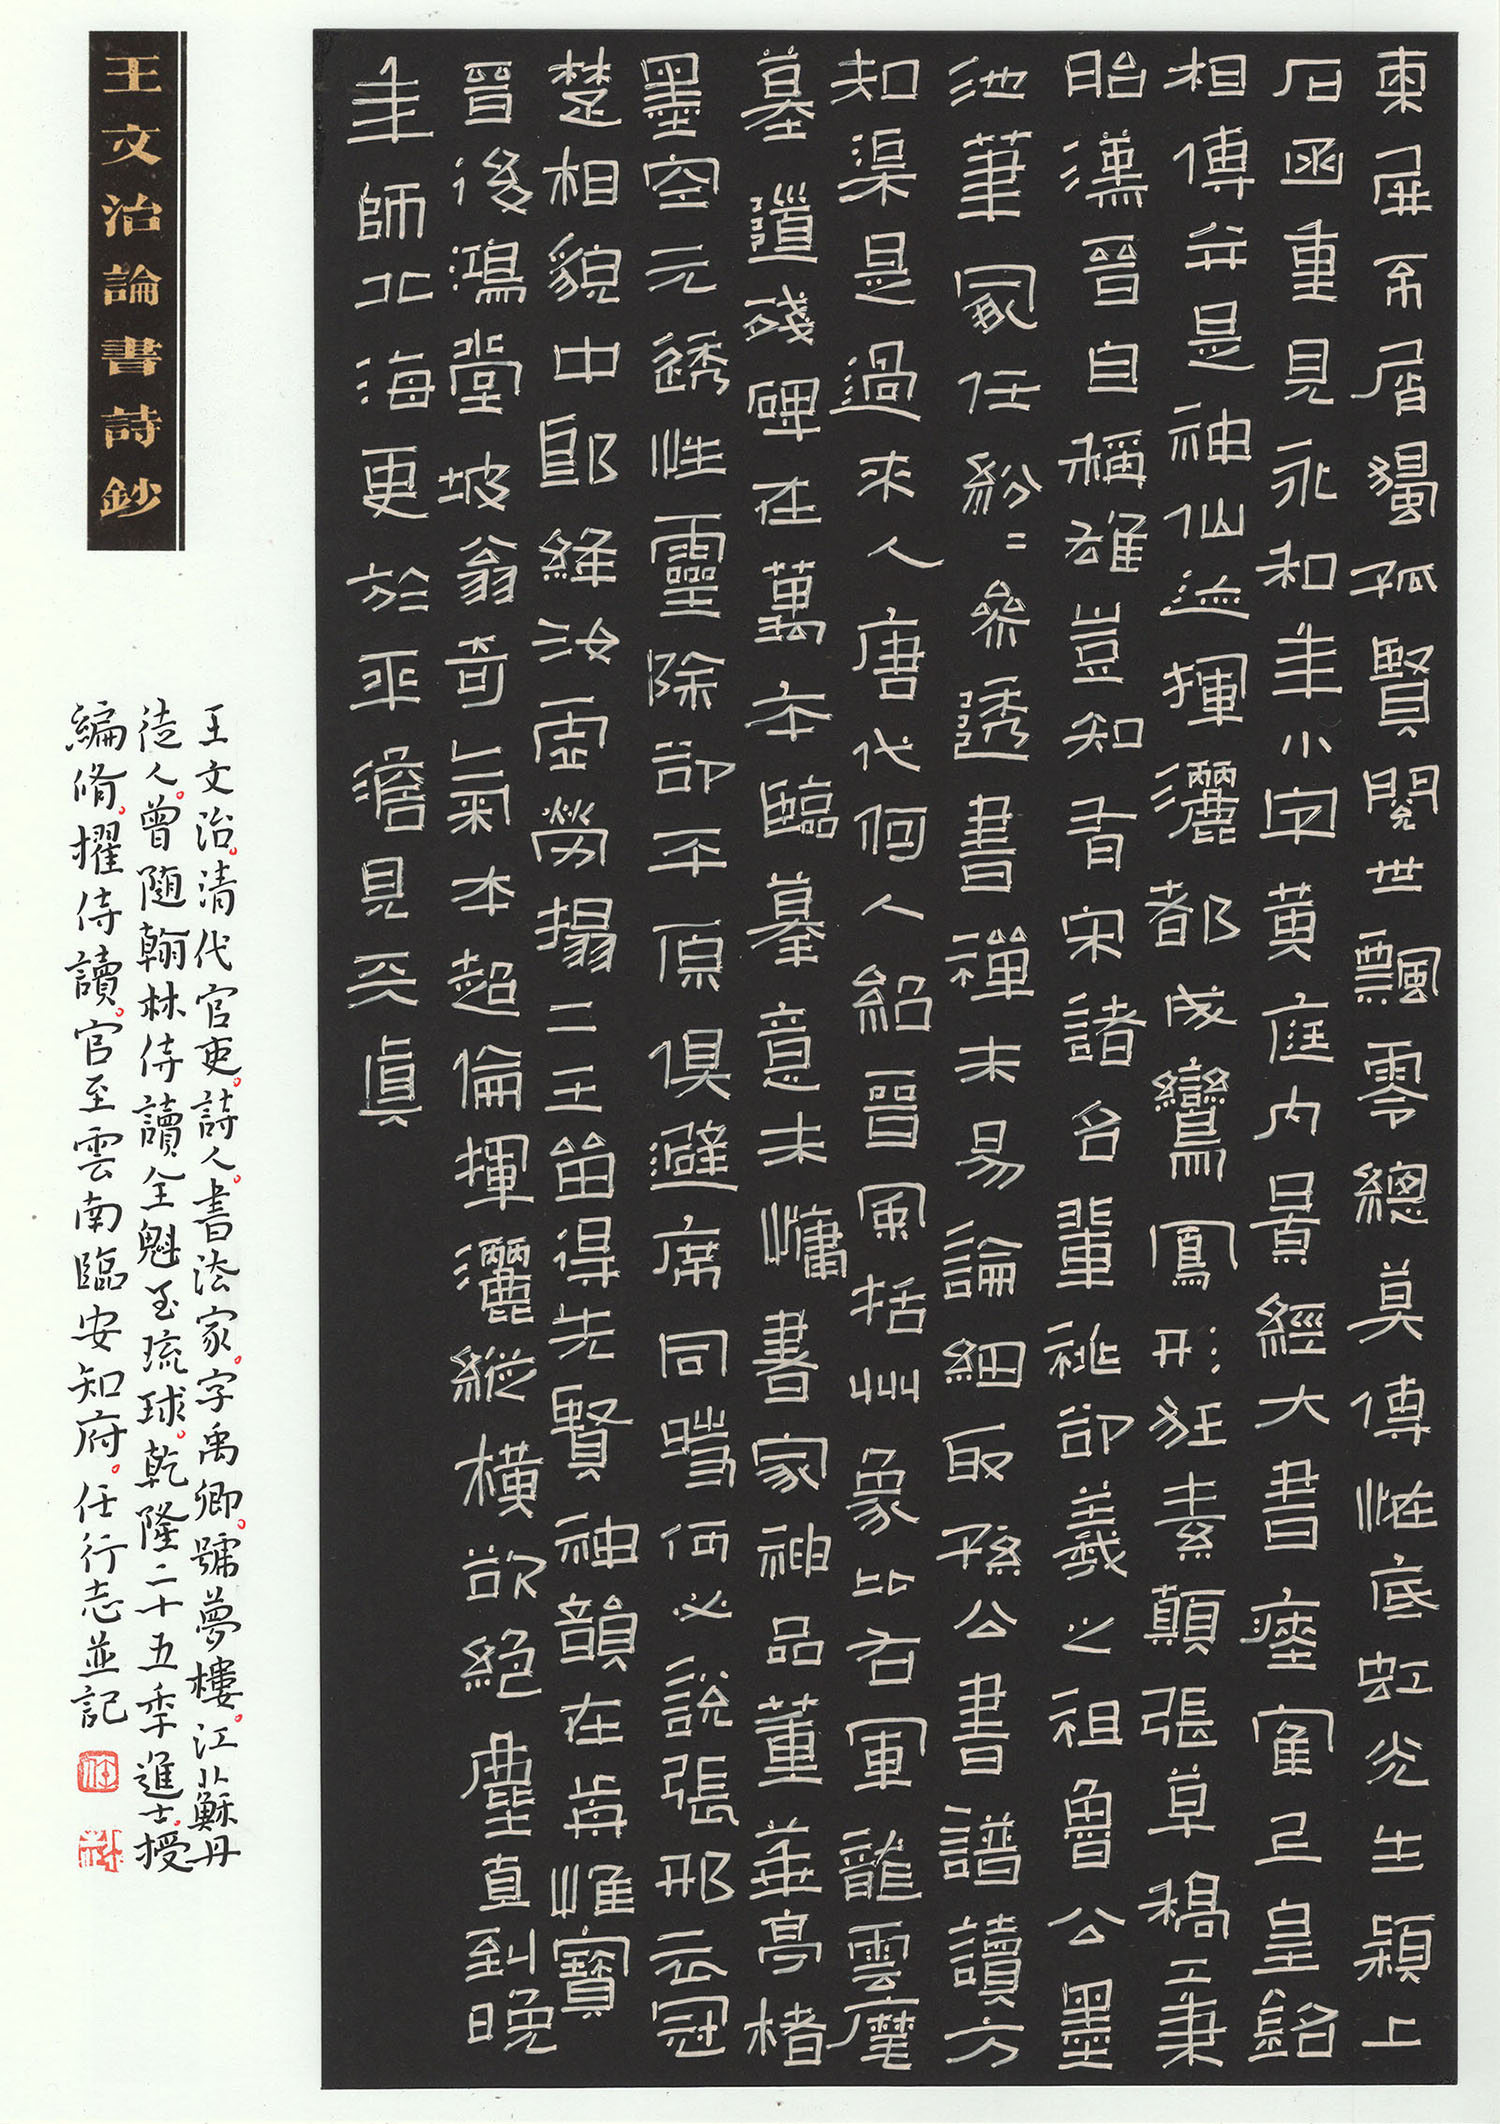 東屏系屑獨孤賢閱世飄零總莫傳恠底虹光生潁上
石函重見永和年小字黃庭內景經大書瘞隺皇銘
相傳并是神仙迹揮灑都成鸞鳳形狂素顛張草稿工兼
眙漢晉自稱雄豈知有宋諸名輩祧卻羲之祖魯公墨
池筆冢任紛〻參透書禪未易論細取孫公書譜讀方
知渠是過來人唐代何人紹晉風括州象比右軍龍雲麾
墓道殘碑在萬本臨摹意未慵書家神品董華亭楮
墨空元透性靈除卻平原俱避席同時何必說張邢衣冠
楚相貌中郎絳汝虛勞搨二王留得先賢神韻在苒惟寶
晉後鴻堂坡翁奇氣本超倫揮灑縱橫欲絕塵直到晚
年師北海更於平澹見天真
王文治論書詩鈔
王文治。清代官吏。詩人。書法家。字禹卿。號夢樓。江蘇丹
徒人。曾随翰林侍讀全魁至琉球。乾隆二十五年進士。授
編脩。擢侍讀。官至雲南臨安知府。任行志並記